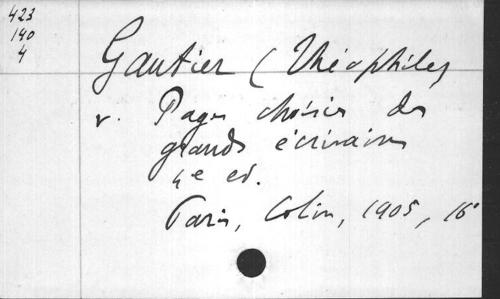 423
140
4
Gautier (Théophile)
v. Pages choisies des
grands écrivains
4e ed.
Paris, Colin, 1905, 16°